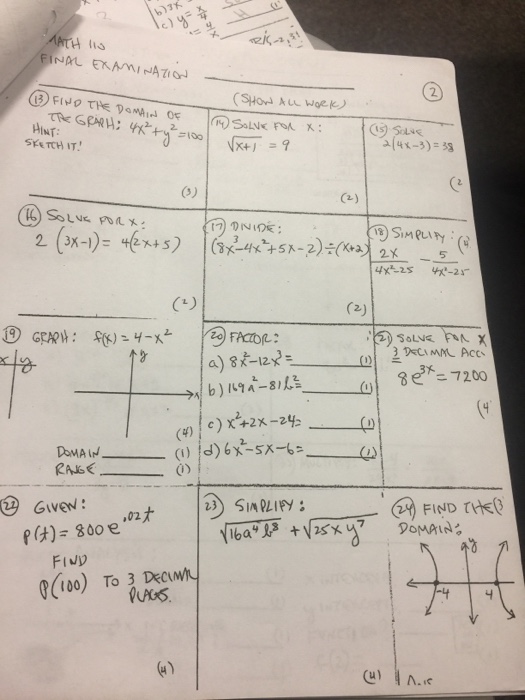 b) 3x
c) y = x/4
MATH 110
FINAL EXAMINATION
(SHOW ALL WORK)
2
13) FIND THE DOMAIN OF
THE GRAPH: 4x²+y²=100
HINT:
SKETCH IT!
(3)
14) SOLVE FOR X:
√x+1 = 9
(2)
15) SOLVE
2(4x-3)=38
(2
16) SOLVE FOR X:
2 (3x-1) = 4(2x+5)
(2)
17) DIVIDE:
(8x³-4x²+5x-2)÷(x+2)
(2)
18) SIMPLIFY:
2x/4x²-25 - 5/4x²-25
19) GRAPH: f(x) = 4-x²
x y
y
x
(4)
DOMAIN (1)
RANGE (1)
20) FACTOR:
a) 8x²-12x³= (1)
b) 169a²-81b²= (1)
c) x²+2x-24= (1)
d) 6x²-5x-6= (1)
21) SOLVE FOR X
3 DECIMAL ACC
8e³ˣ = 7200
(4
22) GIVEN:
P(t) = 800e^.02t
FIND
P(100) TO 3 DECIMAL
PLACES.
(4)
23) SIMPLIFY:
√16a⁴b⁸ + √25xy⁷
(4)
24) FIND THE
DOMAIN:
y
-4 4